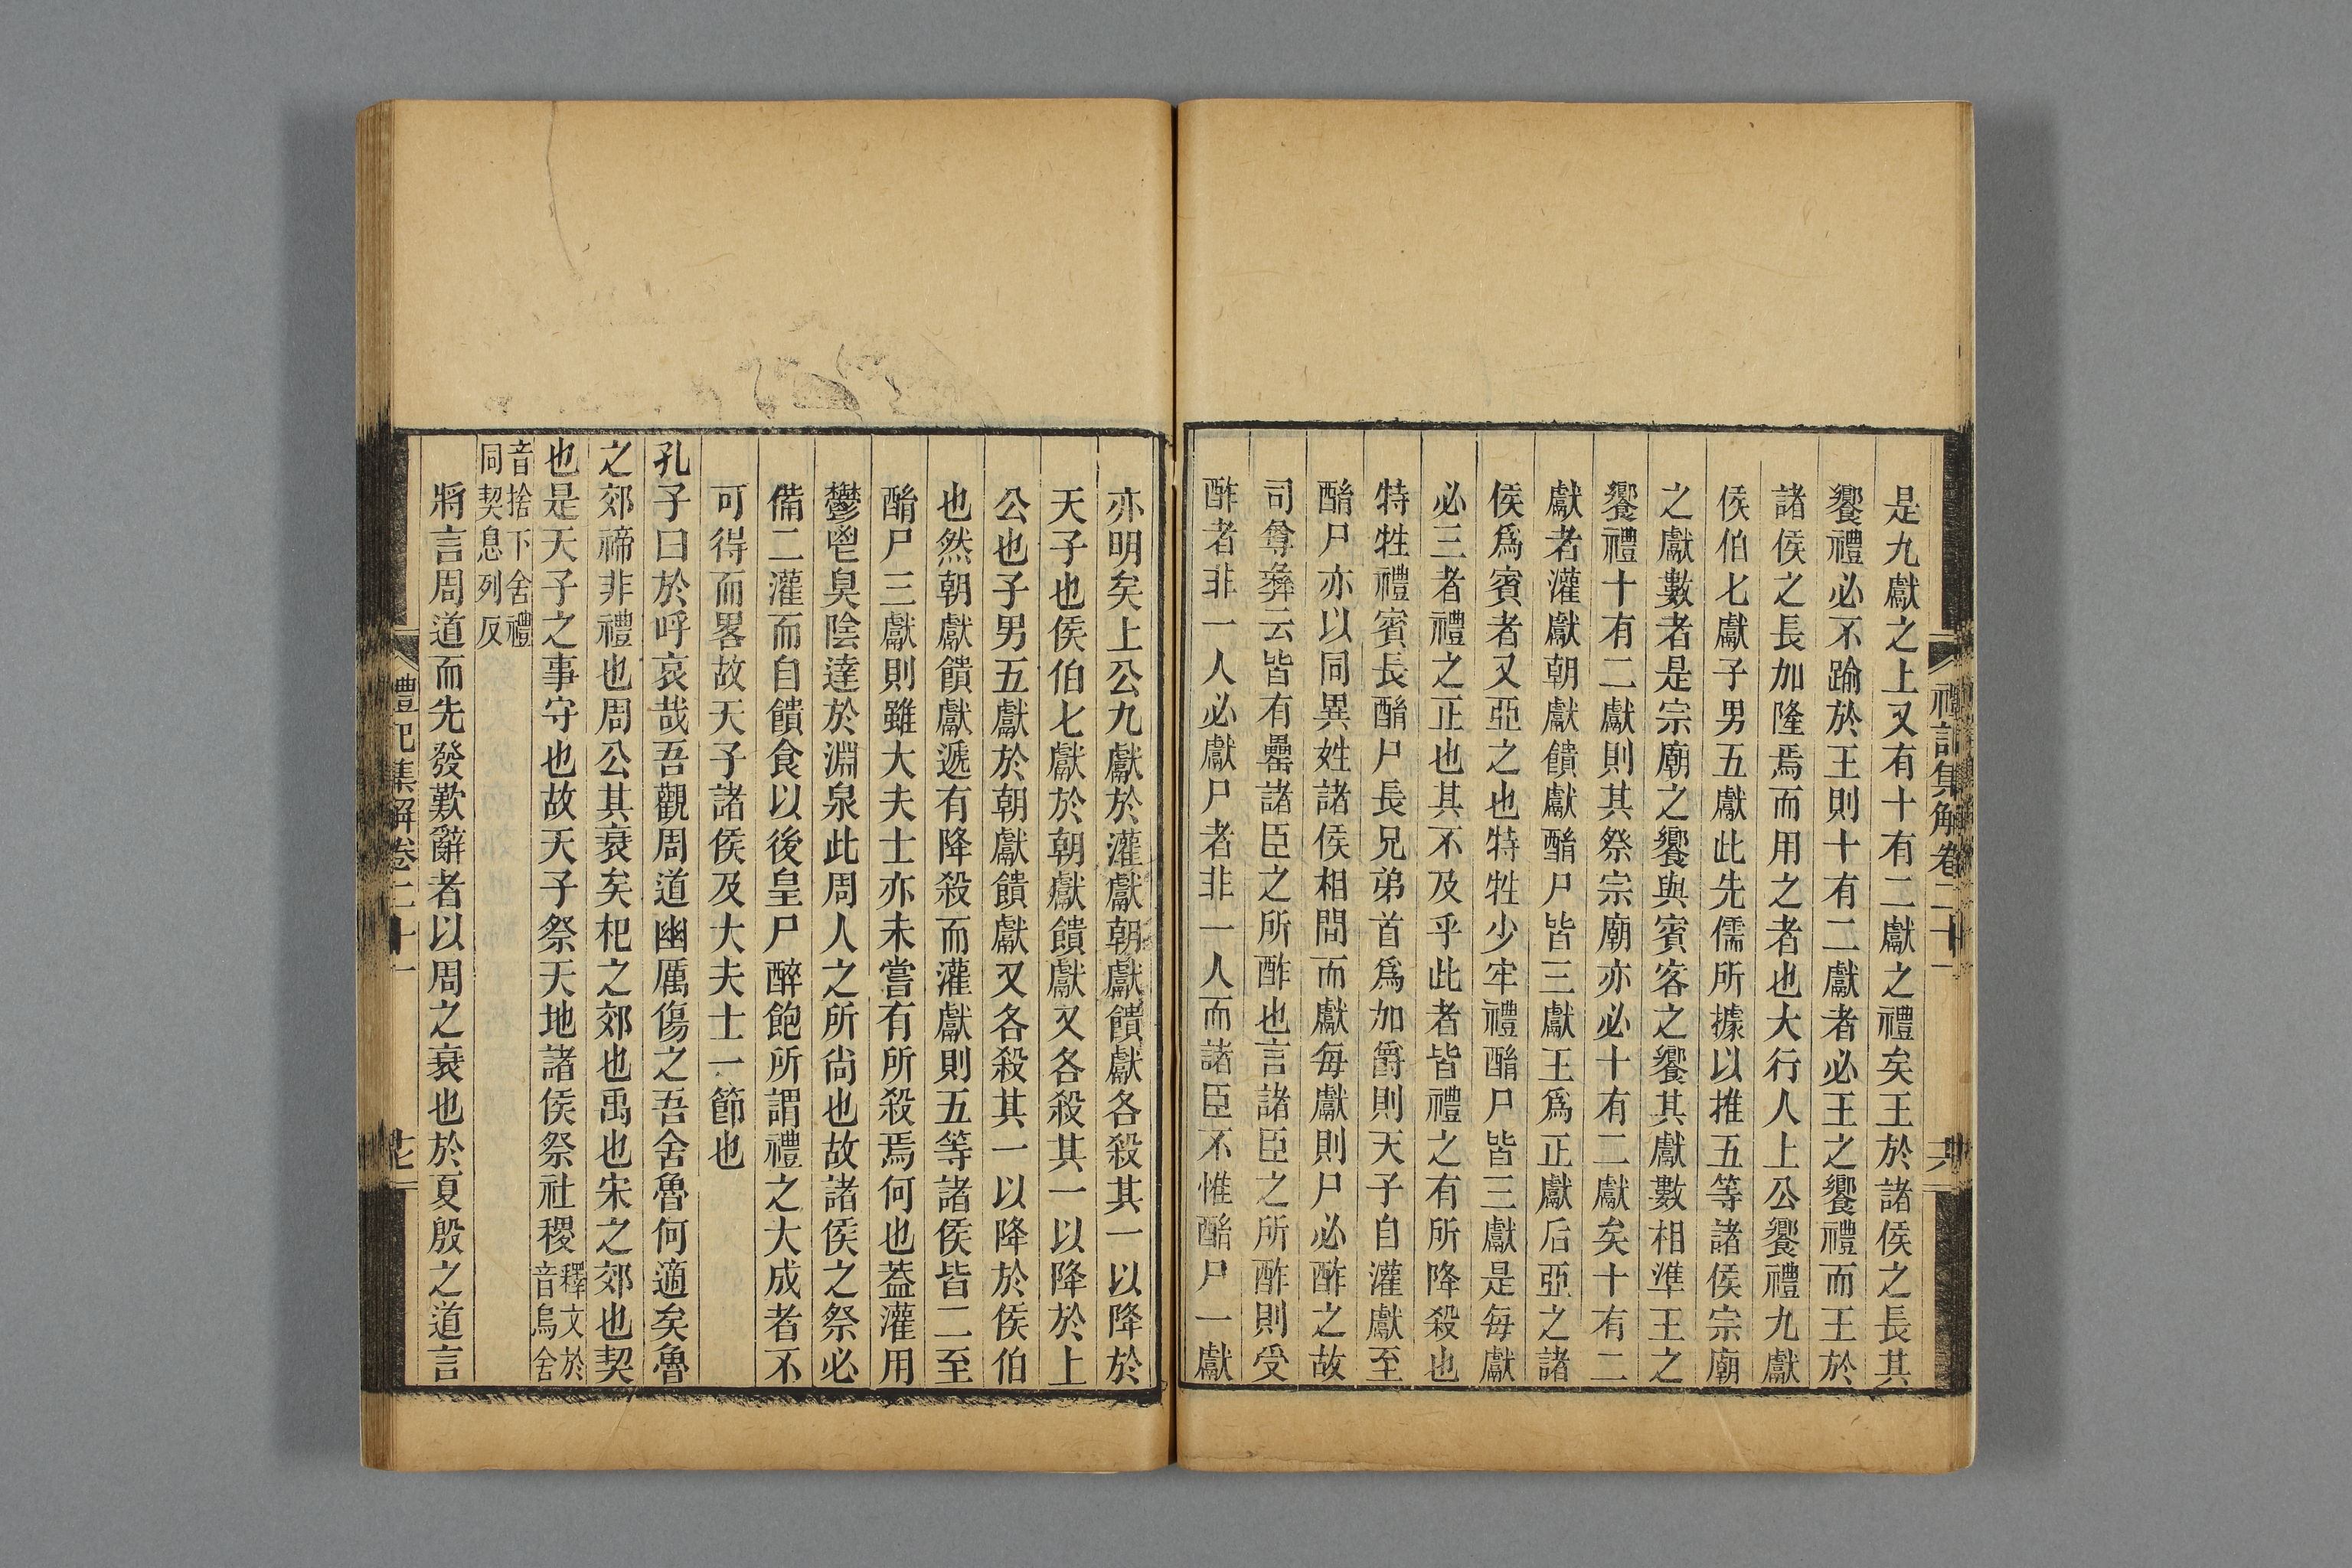 是九獻之上又有十有二獻之禮矣王於諸侯之長其
饗禮必不踰於王則十有二獻者必王之饗禮而王於
諸侯之長加隆焉而用之者也大行人上公饗禮九獻
侯伯七獻子男五獻此先儒所據以推五等諸侯宗廟
之獻數者是宗廟之饗與賓客之饗其獻數相準王之
饗禮十有二獻則其祭宗廟亦必十有二獻矣十有二
獻者灌獻朝獻饋獻酳尸皆三獻王爲正獻后亞之諸
侯爲賓者又亞之也特牲少牢禮酳尸皆三獻是每獻
必三者禮之正也其不及乎此者皆禮之有所降殺也
特牲禮賓長酳尸長兄弟首爲加爵則天子自灌獻至
酳尸亦以同異姓諸侯相間而獻每獻則尸必酢之故
司尊彝云皆有罍諸臣之所酢也言諸臣之所酢則受
酢者非一人必獻尸者非一人而諸臣不惟酳尸一獻
禮記集解卷二十一
亦明矣上公九獻於灌獻朝獻饋獻各殺其一以降於
天子也侯伯七獻於朝獻饋獻又各殺其一以降於上
公也子男五獻於朝獻饋獻又各殺其一以降於侯伯
也然朝獻饋獻遞有降殺而灌獻則五等諸侯皆二至
酳尸三獻則雖大夫士亦未嘗有所殺焉何也葢灌用
鬱鬯臭陰達於淵泉此周人之所尙也故諸侯之祭必
備二灌而自饋食以後皇尸醉飽所謂禮之大成者不
可得而畧故天子諸侯及大夫士一節也
孔子曰於呼哀哉吾觀周道幽厲傷之吾舍魯何適矣魯
之郊禘非禮也周公其衰矣杞之郊也禹也宋之郊也契
也是天子之事守也故天子祭天地諸侯祭社稷
釋文於
音烏舍
音捨下舍禮
同契息列反
將言周道而先發歎辭者以周之衰也於夏殷之道言
禮記集解卷二十一